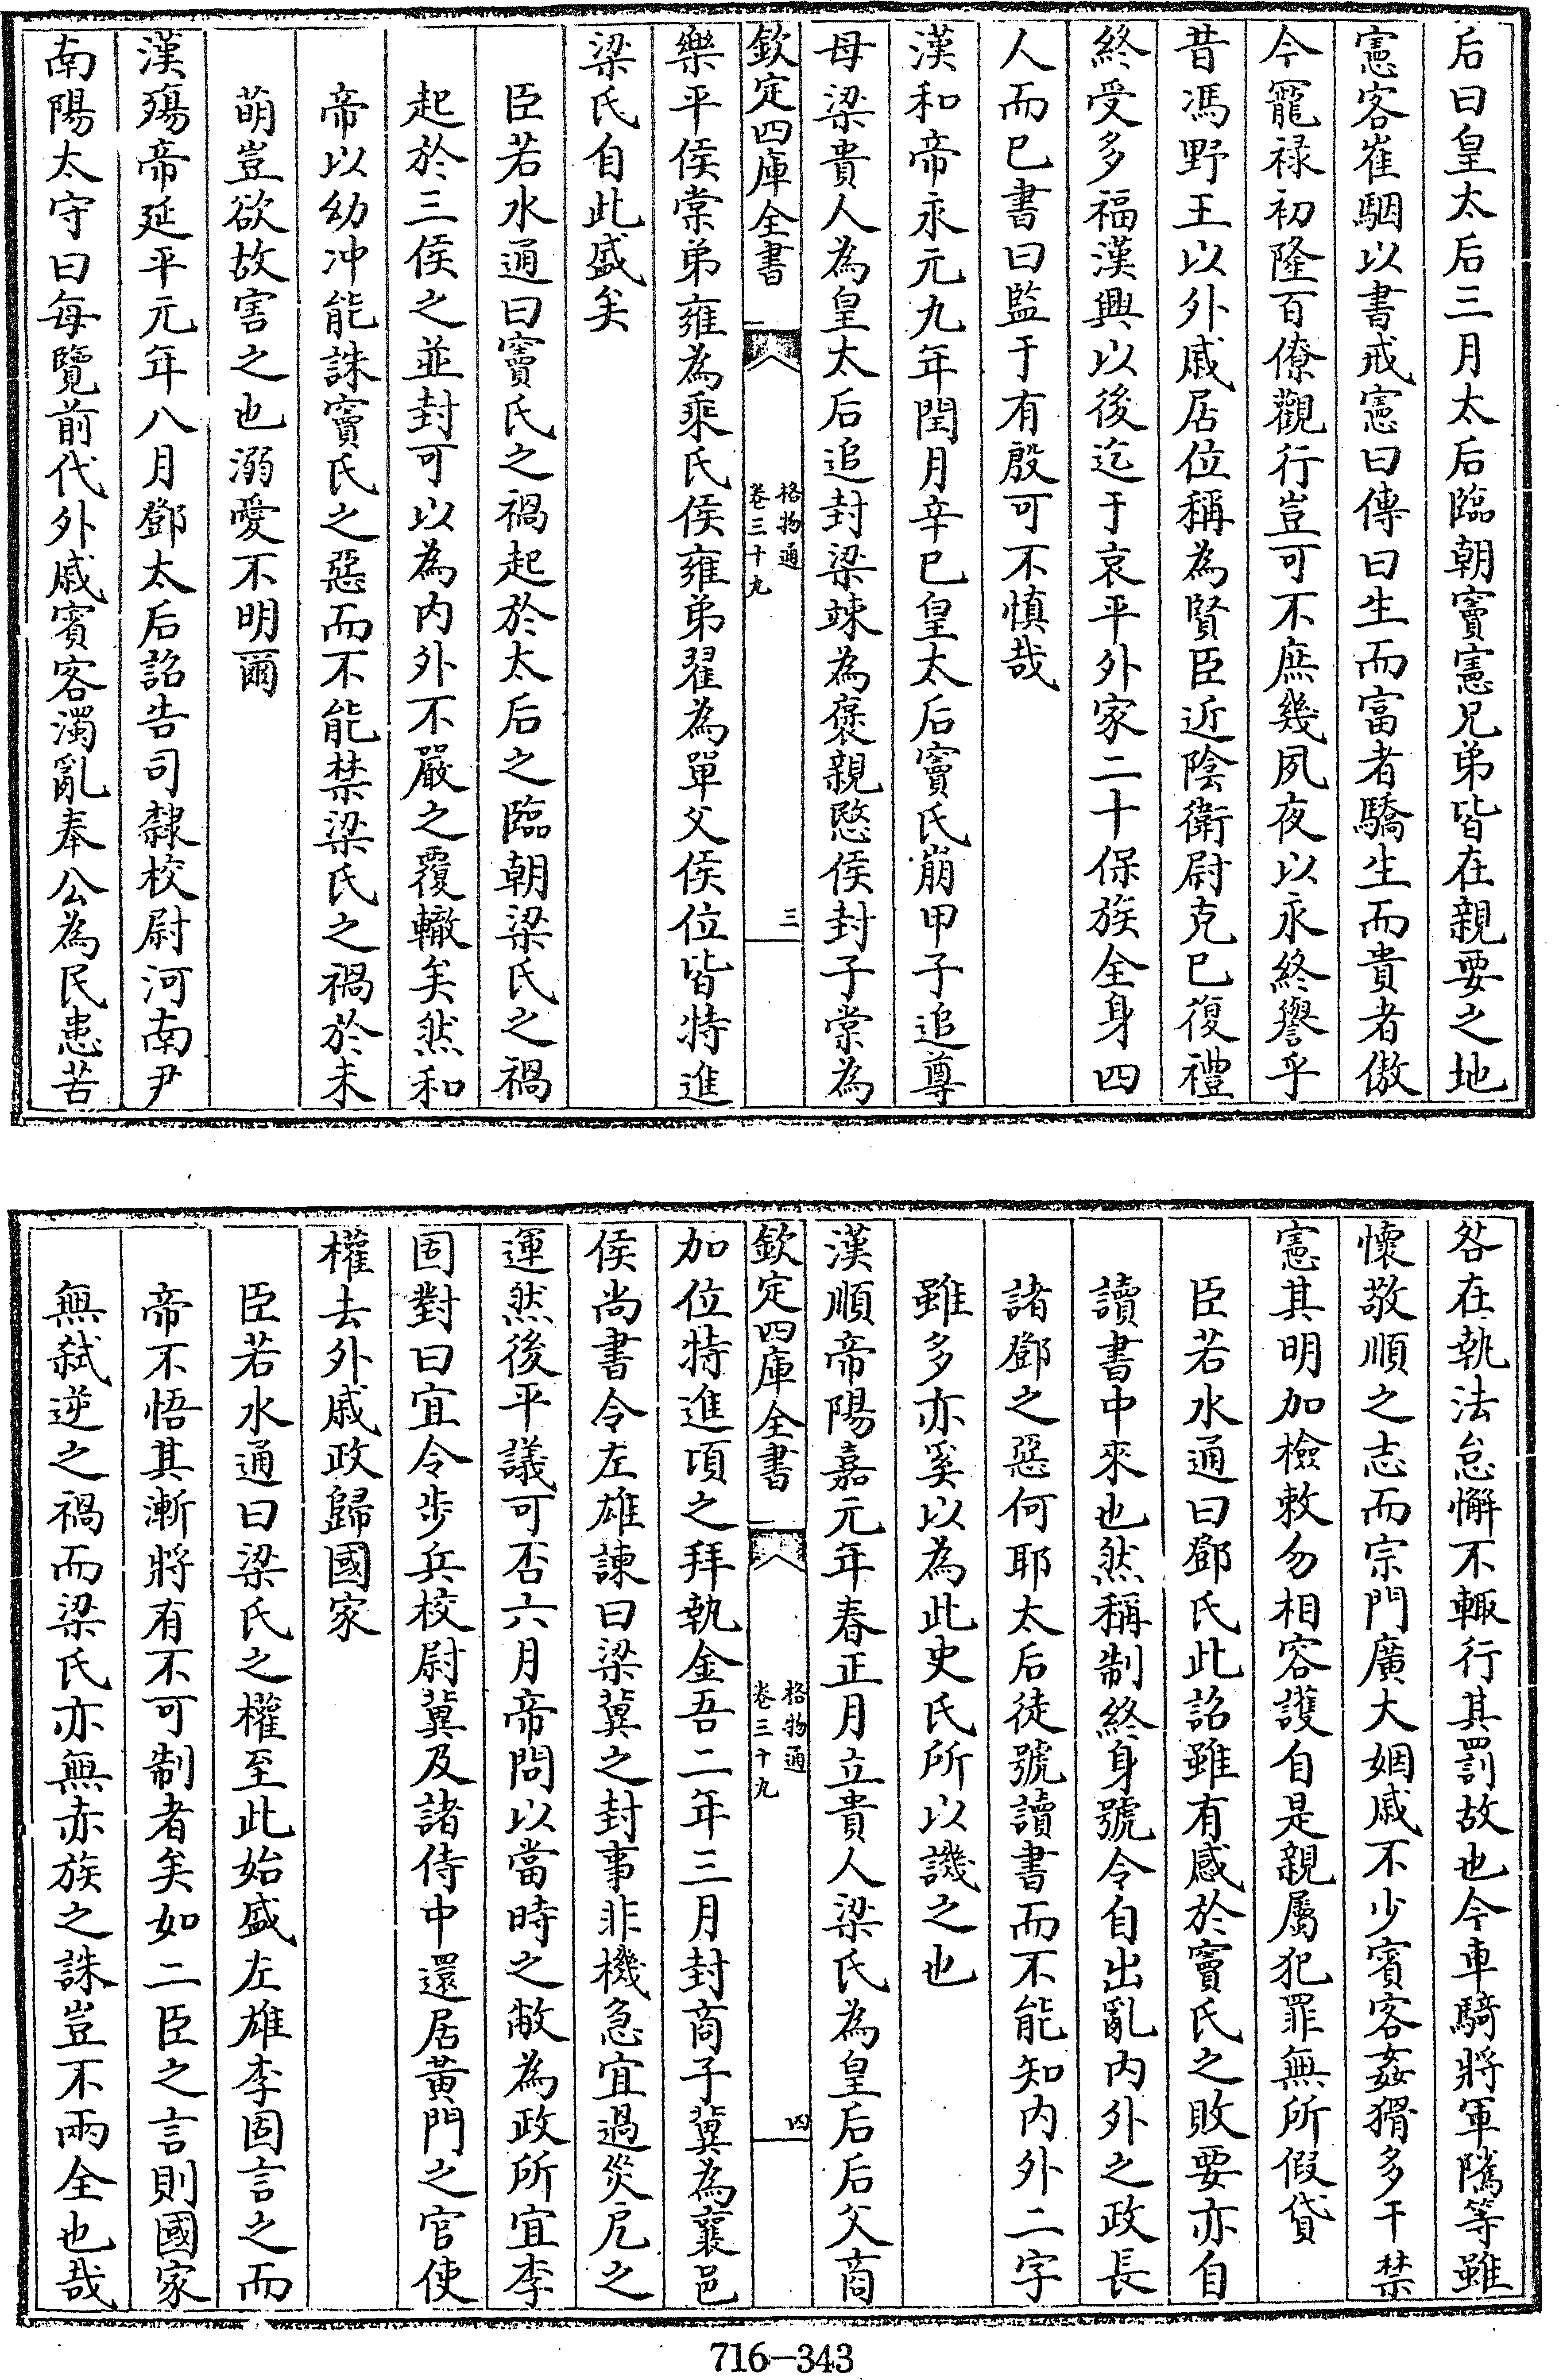 后曰皇太后三月太后臨朝竇憲兄弟皆在親要之地
憲客崔駰以書戒憲曰傳曰生而富者驕生而貴者傲
今寵禄初隆百僚觀行豈可不庶幾夙夜以永終譽乎
昔馮野王以外戚居位稱為賢臣近陰衛尉克已復禮
終受多福漢興以後迄于哀平外家二十保族全身四
人而已書曰監于有殷可不慎哉
漢和帝永元九年閏月辛巳皇太后竇氏崩甲子追尊
母梁貴人為皇太后追封梁竦為褒親愍侯封子棠為
欽定四庫全書
格物通
卷三十九
三
樂平侯棠弟雍為乘氏侯雍弟翟為單父侯位皆特進
梁氏自此盛矣
臣若水通曰竇氏之禍起於太后之臨朝梁氏之禍
起於三侯之並封可以為内外不嚴之覆轍矣然和
帝以幼冲能誅竇氏之惡而不能禁梁氏之禍於未
萌豈欲故害之也溺愛不明爾
漢殤帝延平元年八月鄧太后詔告司隸校尉河南尹
南陽太守曰每覽前代外戚賓客濁亂奉公為民患苦
咎在執法怠懈不輙行其罰故也今車騎將軍隲等雖
懷敬順之志而宗門廣大姻戚不少賓客姦猾多干禁
憲其明加檢敕勿相容護自是親屬犯罪無所假貸
臣若水通曰鄧氏此詔雖有感於竇氏之敗要亦自
讀書中來也然稱制終身號令自出亂内外之政長
諸鄧之惡何耶太后徒號讀書而不能知内外二字
雖多亦奚以為此史氏所以譏之也
漢順帝陽嘉元年春正月立貴人梁氏為皇后后父商
欽定四庫全書
格物通
卷三十九
四
加位特進頃之拜執金吾二年三月封商子冀為襄邑
侯尚書令左雄諫曰梁冀之封事非機急宜過災戹之
運然後平議可否六月帝問以當時之敝為政所宜李
固對曰宜令步兵校尉冀及諸侍中還居黄門之官使
權去外戚政歸國家
臣若水通曰梁氏之權至此始盛左雄李固言之而
帝不悟其漸將有不可制者矣如二臣之言則國家
無弑逆之禍而梁氏亦無赤族之誅豈不兩全也哉
716-343